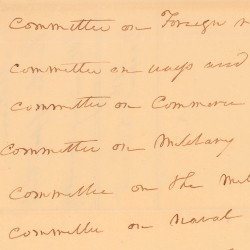 Committee on Foreign
Committee on ways and
Committee on Commerce
Committee on Military
Committee on the Mil
Committee on Naval